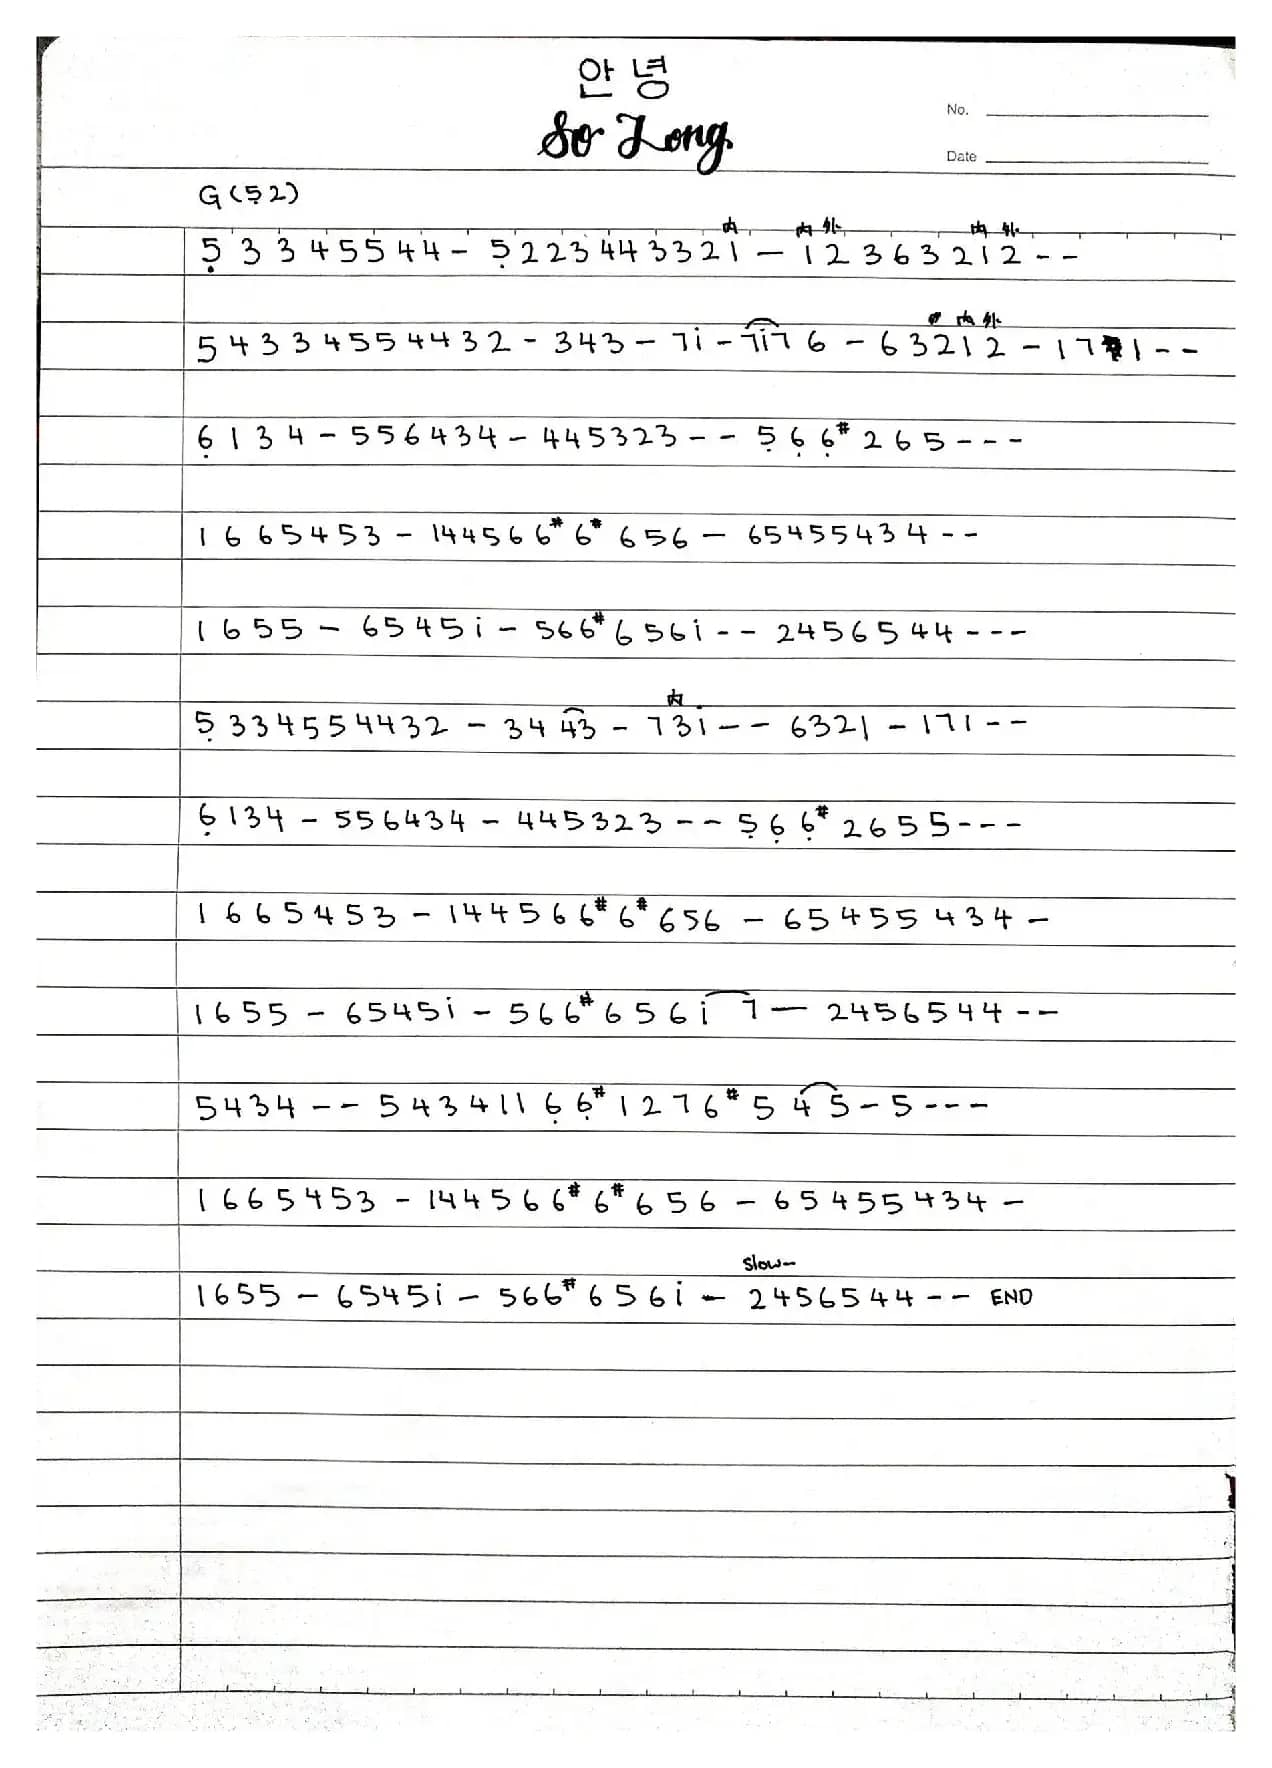 안녕
So Long
No.
Date
G (5̣2)
内 内 外 内 外
5̣ 3 3 4 5 5 4 4 - 5̣ 2 2 3 4 4 3 3 2 1 - 1 2 3 6 3 2 1 2 - -
内 外
5 4 3 3 4 5 5 4 4 3 2 - 3 4 3 - 7 i - 7 i 7 6 - 6 3 2 1 2 - 1 7 1 - -
6̣ 1 3 4 - 5 5 6 4 3 4 - 4 4 5 3 2 3 - - 5̣ 6̣ 6̣# 2 6 5 - - -
1 6 6 5 4 5 3 - 1 4 4 5 6 6# 6# 6 5 6 - 6 5 4 5 5 4 3 4 - -
1 6 5 5 - 6 5 4 5 i - 5 6 6# 6 5 6 i - - 2 4 5 6 5 4 4 - - -
内
5̣ 3 3 4 5 5 4 4 3 2 - 3 4 4 3 - 7 3 i - - 6 3 2 1 - 1 7 1 - -
6̣ 1 3 4 - 5 5 6 4 3 4 - 4 4 5 3 2 3 - - 5̣ 6̣ 6̣# 2 6 5 5 - - -
1 6 6 5 4 5 3 - 1 4 4 5 6 6# 6# 6 5 6 - 6 5 4 5 5 4 3 4 -
1 6 5 5 - 6 5 4 5 i - 5 6 6# 6 5 6 i 7 - 2 4 5 6 5 4 4 - -
5 4 3 4 - - 5 4 3 4 1 1 6̣ 6̣# 1 2 7 6# 5 4 5 - 5 - - -
1 6 6 5 4 5 3 - 1 4 4 5 6 6# 6# 6 5 6 - 6 5 4 5 5 4 3 4 -
Slow-
1 6 5 5 - 6 5 4 5 i - 5 6 6# 6 5 6 i - 2 4 5 6 5 4 4 - - END